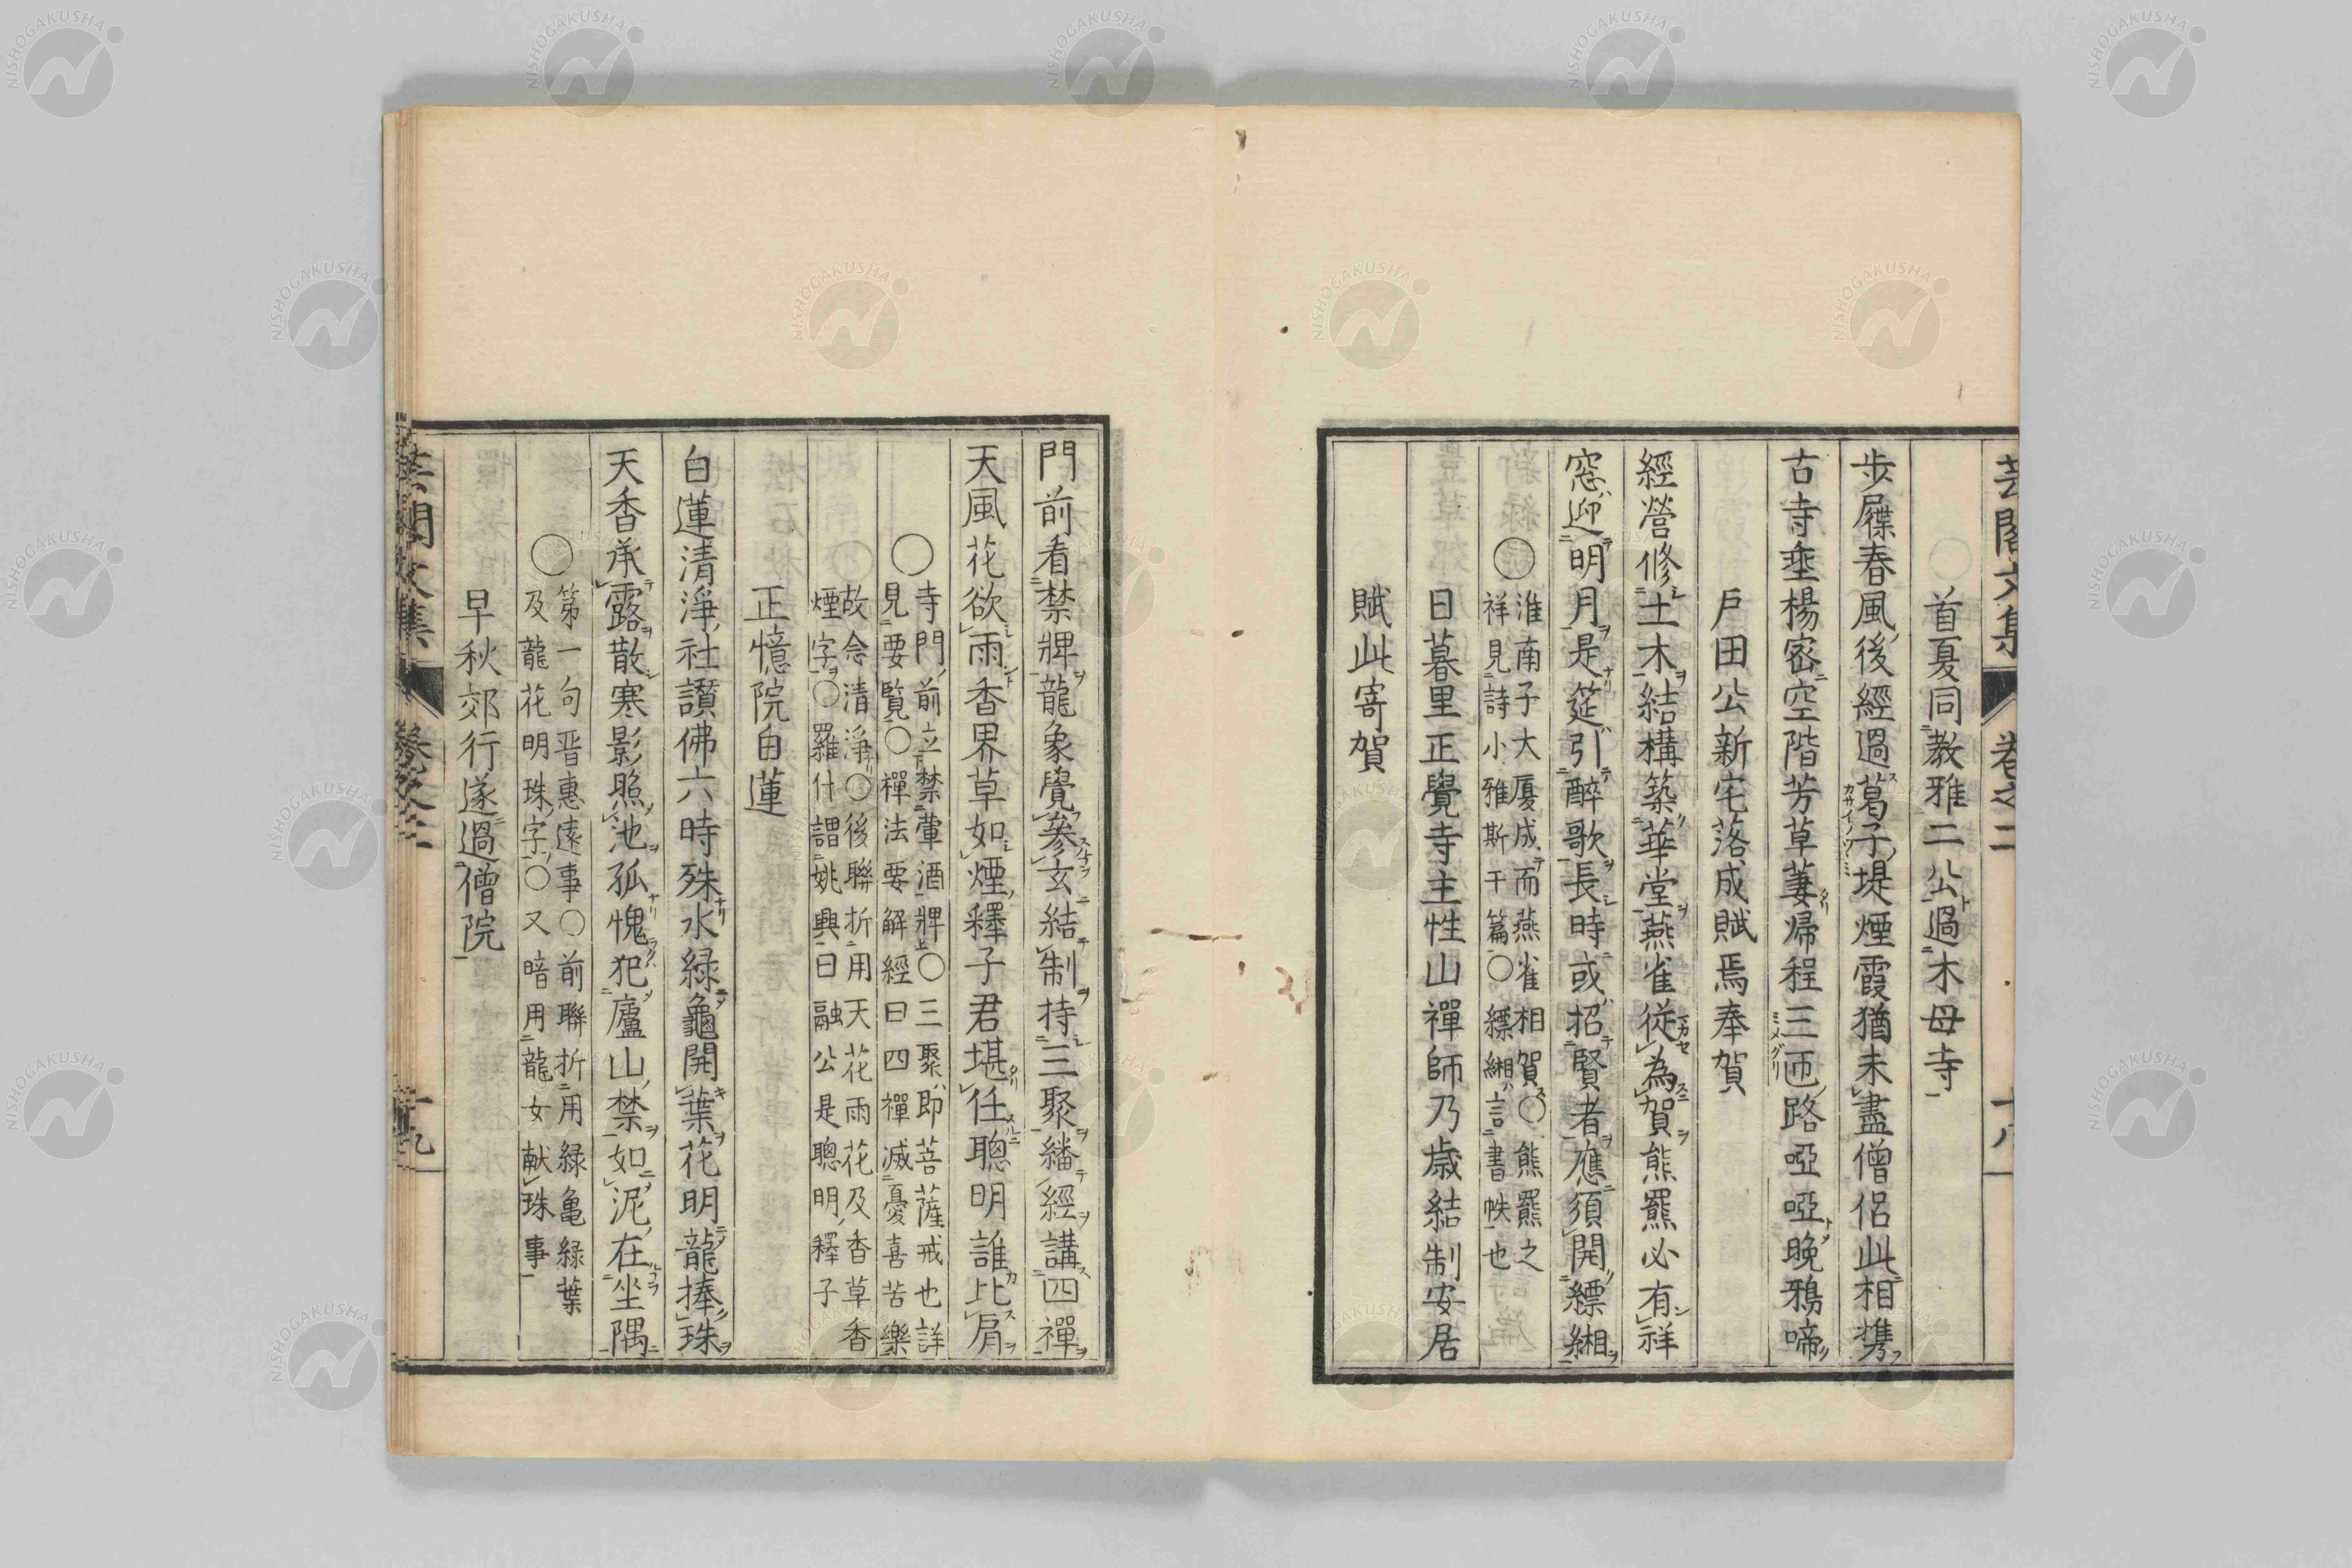 芸閣文集 卷之二 十八
首夏同教雅二公過木母寺
步屧春風後經過葛子堤煙霞猶未盡僧侶此相携
古寺垂楊密空階芳草萋帰程三匝路啞啞晚鴉啼
戶田公新宅落成賦焉奉賀
經營修土木結構築華堂燕雀従為賀熊羆必有祥
窓迎明月是筵引醉歌長時或招賢者應須開縹緗
〇淮南子大厦成而燕雀相賀〇熊羆之
祥見詩小雅斯干篇〇縹緗言書帙也
日暮里正覺寺主性山禪師乃歳結制安居
賦此寄賀
門前看禁牌龍象覺參玄結制持三聚繙經講四禪
天風花欲雨香界草如煙釋子君堪任聰明誰比肩
〇寺門前立禁葷酒牌〇三聚即菩薩戒也詳
見要覧〇禪法要解經曰四禪滅憂喜苦樂
故念清淨〇後聯折用天花雨花及香草香
煙字〇羅什謂姚興曰融公是聰明釋子
正憶院白蓮
白蓮清淨社讃佛六時殊水緑龜開葉花明龍捧珠
天香承露散寒影照池孤愧犯廬山禁如泥在坐隅
〇第一句晋惠遠事〇前聯折用緑亀緑葉
及龍花明珠字〇又暗用龍女献珠事
早秋郊行遂過僧院
芸閣文集 卷之二 十九
NISHOGAKUSHA